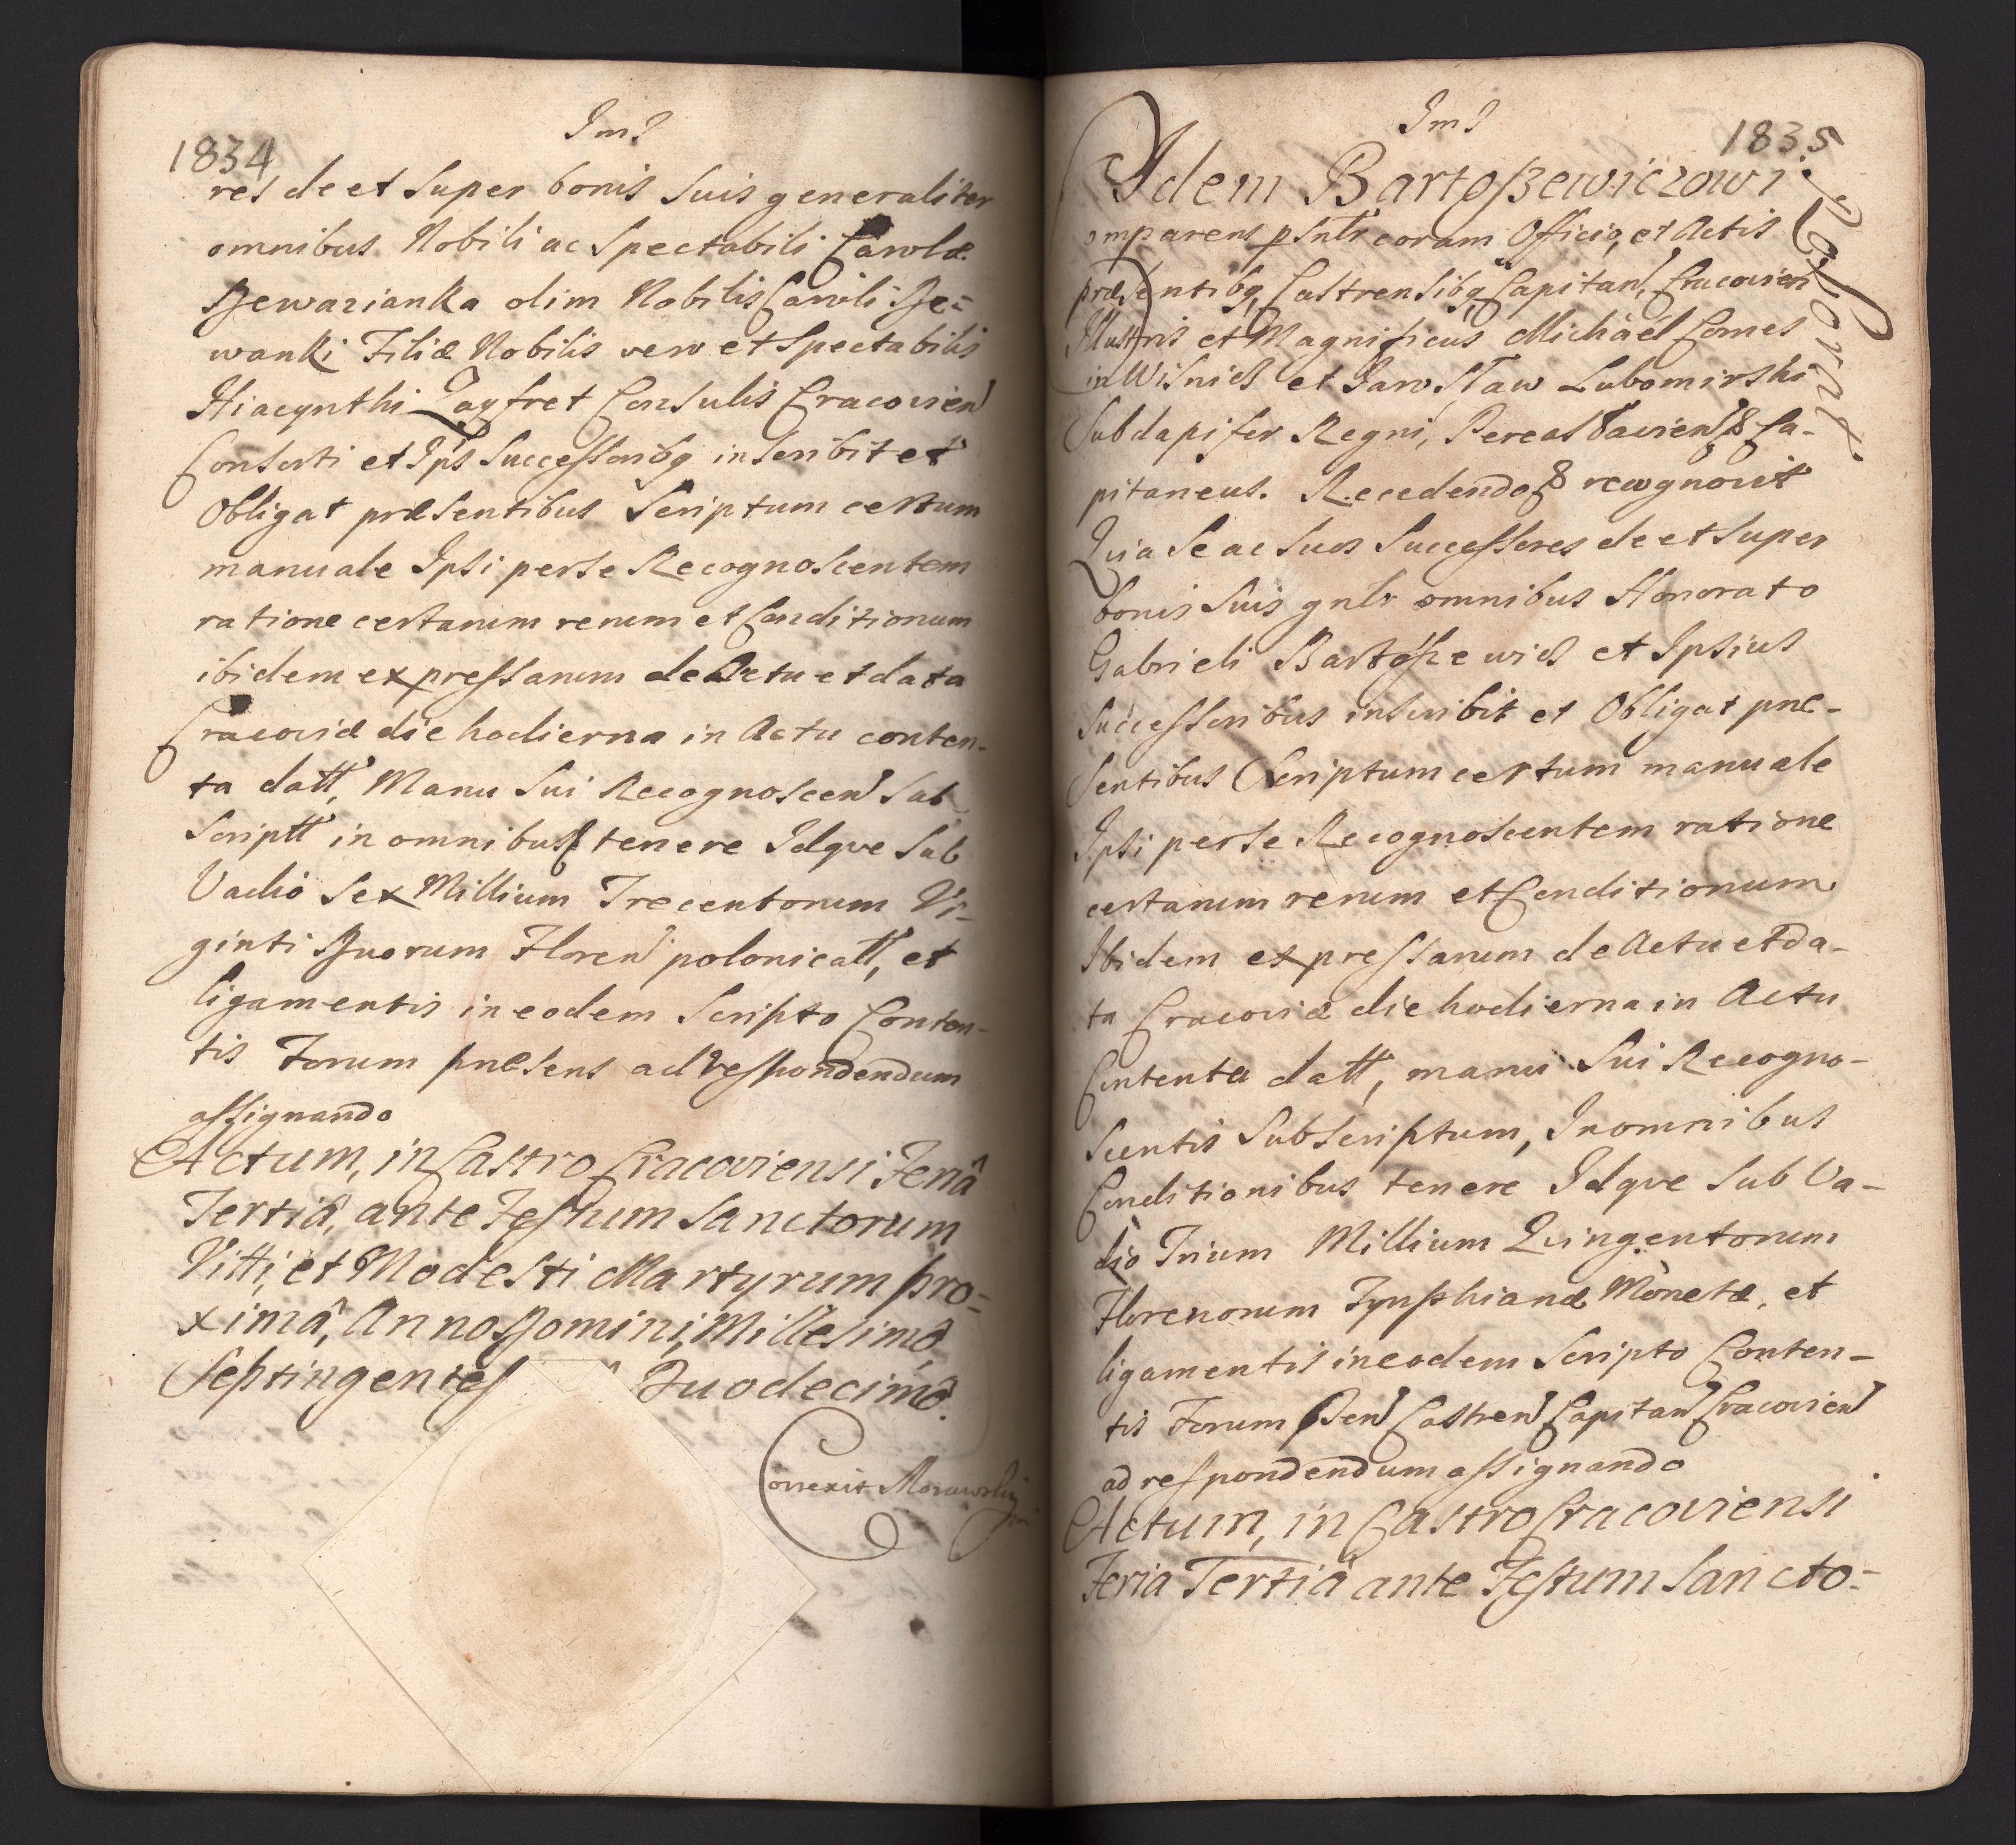 1834
Im?
res de et Super bonis Suis generaliter
omnibus Nobili ac Spectabili Carolæ
olim Nobilis Caroli De=
wanki Filiæ Nobilis vero et Spectabilis
Hiacynthi Zayfret Consulis Cracovien
Conserti et Ips Successoribq inscribit et
Obligat præsentibus Scriptum certum
manuale Ipsi per se Recognoscentem
ratione certarum rerum et Conditionum
ibidem expressarum de Actu et data
Cracoviæ die hodierna in Actu conten-
ta datt, Manu Sui Recognoscen Sub
Scriptt in omnibus tenere Idqve Sub
Vadio Sex Millium Trecentorum Vi-
ginti Duorum Floren polonicatt, et
ligamentis in eodem Scripto Conten-
tis Forum præsens ad respondendum
assignando
Actum, in Castro Cracoviensi Feriâ
Tertiâ, ante Festum Sanctorum
Vitti, et Modesti Martyrum pro=
ximâ, Anno Domini, Millesimô,
Septingentes Duodecimô.
Correxit Morawsky
1835
Im?
Idem Bartoszewiczowi
Roborat
omparens pSntr coram Officio, et Actis
præsentibq, Castrensibq Capitan, Cracovien
Illustris et Magnificus Michàél Comes
in Wisnicz et Jarosław Lubomirski
Subdapifer Regni, Pereasłavien & Ca-
pitaneus. Recedendo & recognovit
Quia Se ac Suos Successores de et Super
bonis Suis gnlr omnibus Honorato
Gabrieli Bartoszewicz et Ipsius
Successoribus inscribit et Obligat præ-
sentibus Scriptum certum manuale
Ipsi per se Recognoscentem ratione
certarum rerum et Conditionum
Ibidem expressarum de Actu et da-
ta Cracoviæ die hodierna in Actu
Contenta datt, manu Sui Recogno-
scentis Subscriptum, In omnibus
Conditionibus tenere Idqve Sub Va-
dio Trium Millium Quingentorum
Florenorum Tynphianæ Monetæ, et
ligamentis in eodem Scripto Conten-
tis Forum Castren Capitan Cracovien
ad respondendum assignando
Actum, in Castro Cracoviensi
Feria Tertiâ ante Festum Sancto=